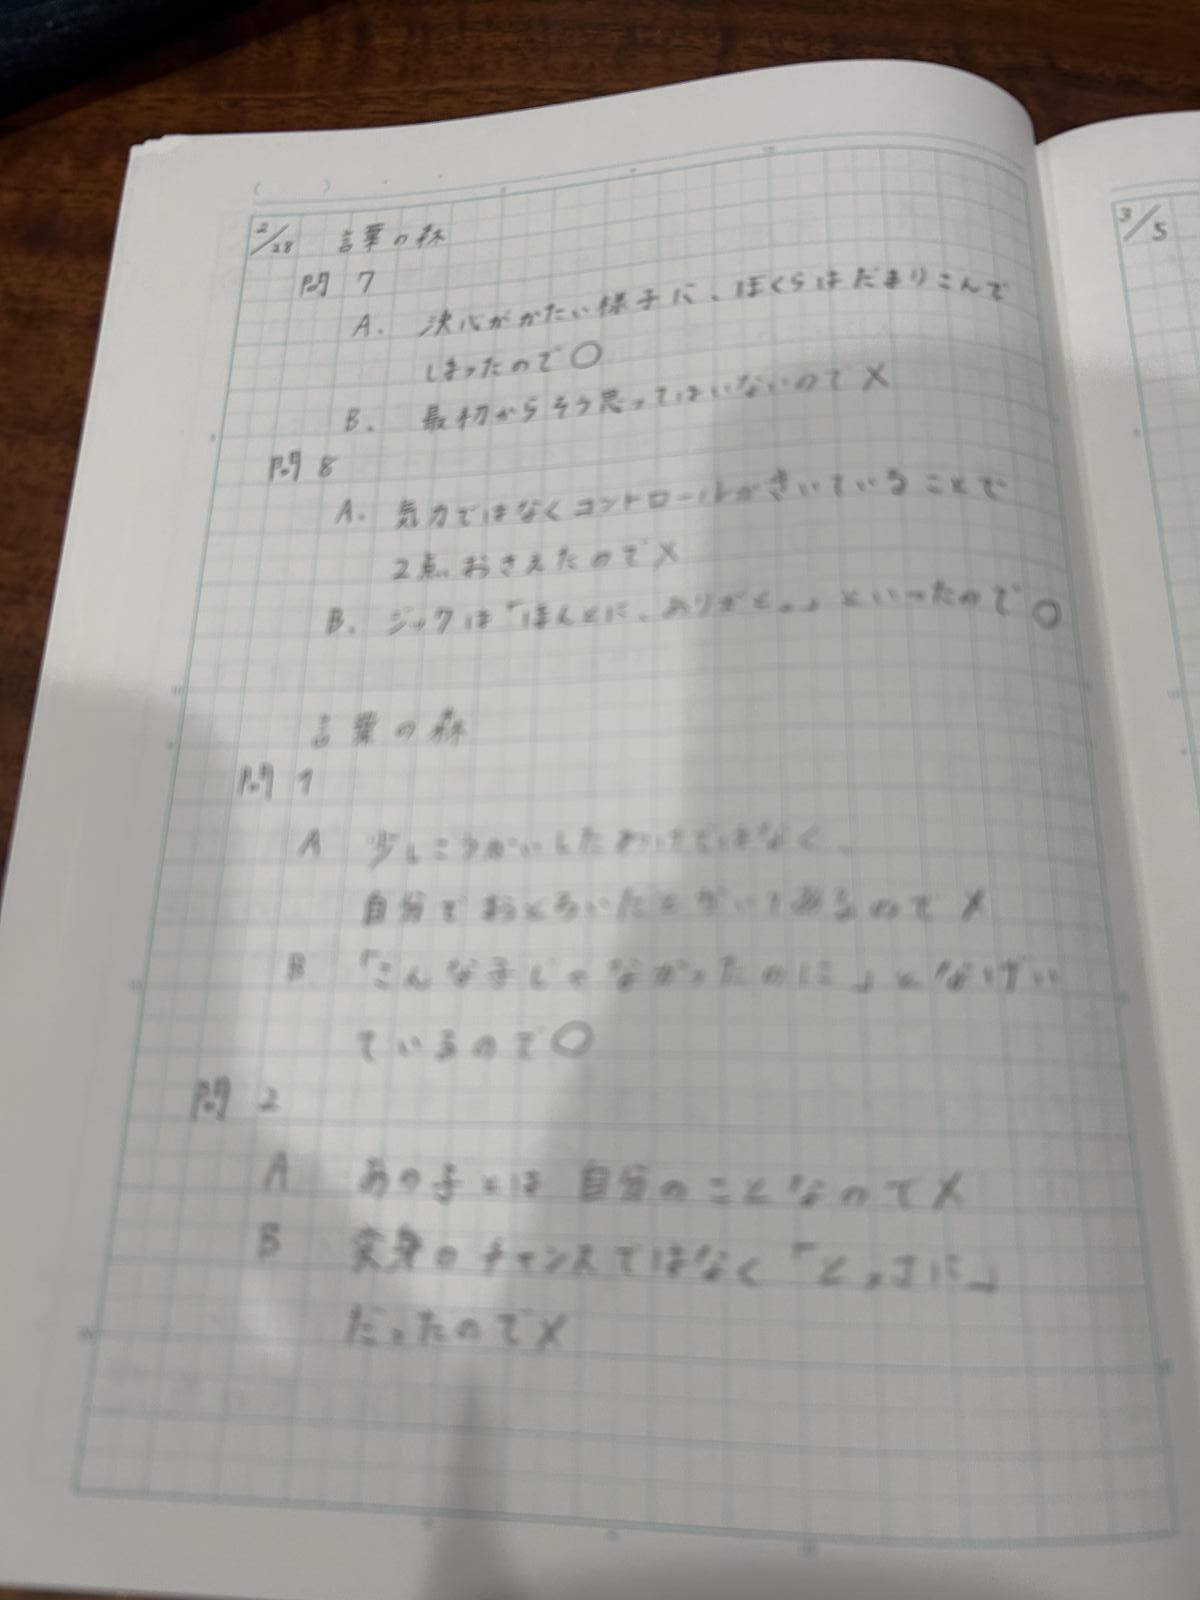 2/28 言葉の森
問 7
A. 決心がかたい様子に、ぼくらはだまりこんで
しまったので〇
B. 最初からそう思ってはいないので×
問 8
A. 気力ではなくコントロールがきいていることで
2点おさえたので×
B. ジックは「ほんとに、ありがと。」といったので〇
言葉の森
問 1
A 少しこうかいしたわけではなく、
自分でおどろいたとかいてあるので×
B 「こんな子じゃなかったのに」となげい
ているので〇
問 2
A あの子とは自分のことなので×
B 変身のチャンスではなく「とっさに」
だったので×
3/5